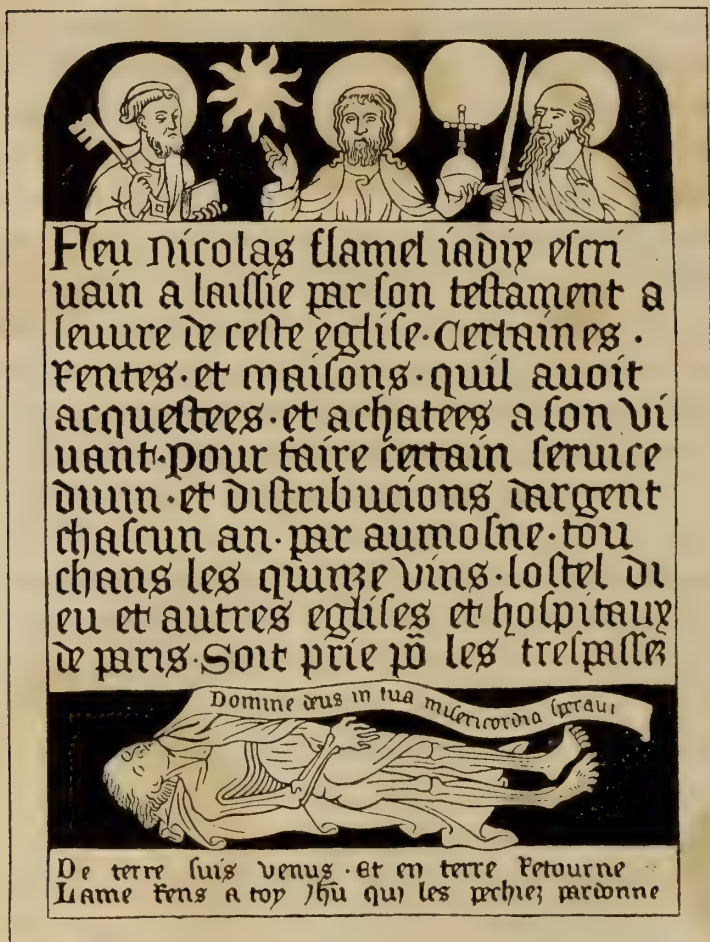 Feu nicolas flamel iadix eſcri
uain a laiſſie par ſon teſtament a
leuure de ceſte egliſe · Certaines ·
rentes · et maiſons · quil auoit
acqueſtees · et achatees a ſon vi
uant · pour faire certain ſeruice
diuin · et diſtribucions dargent
chaſcun an · par aumoſne · tou
chans les quinze vins · loſtel di
eu et autres egliſes et hoſpitaux
de paris · Soit prie põ les treſpaſſez
Domine deus in tua miſericordia ſperaui
De terre ſuis venus · Et en terre retourne
Lame rens a toy Jhũ qui les pechiez pardonne